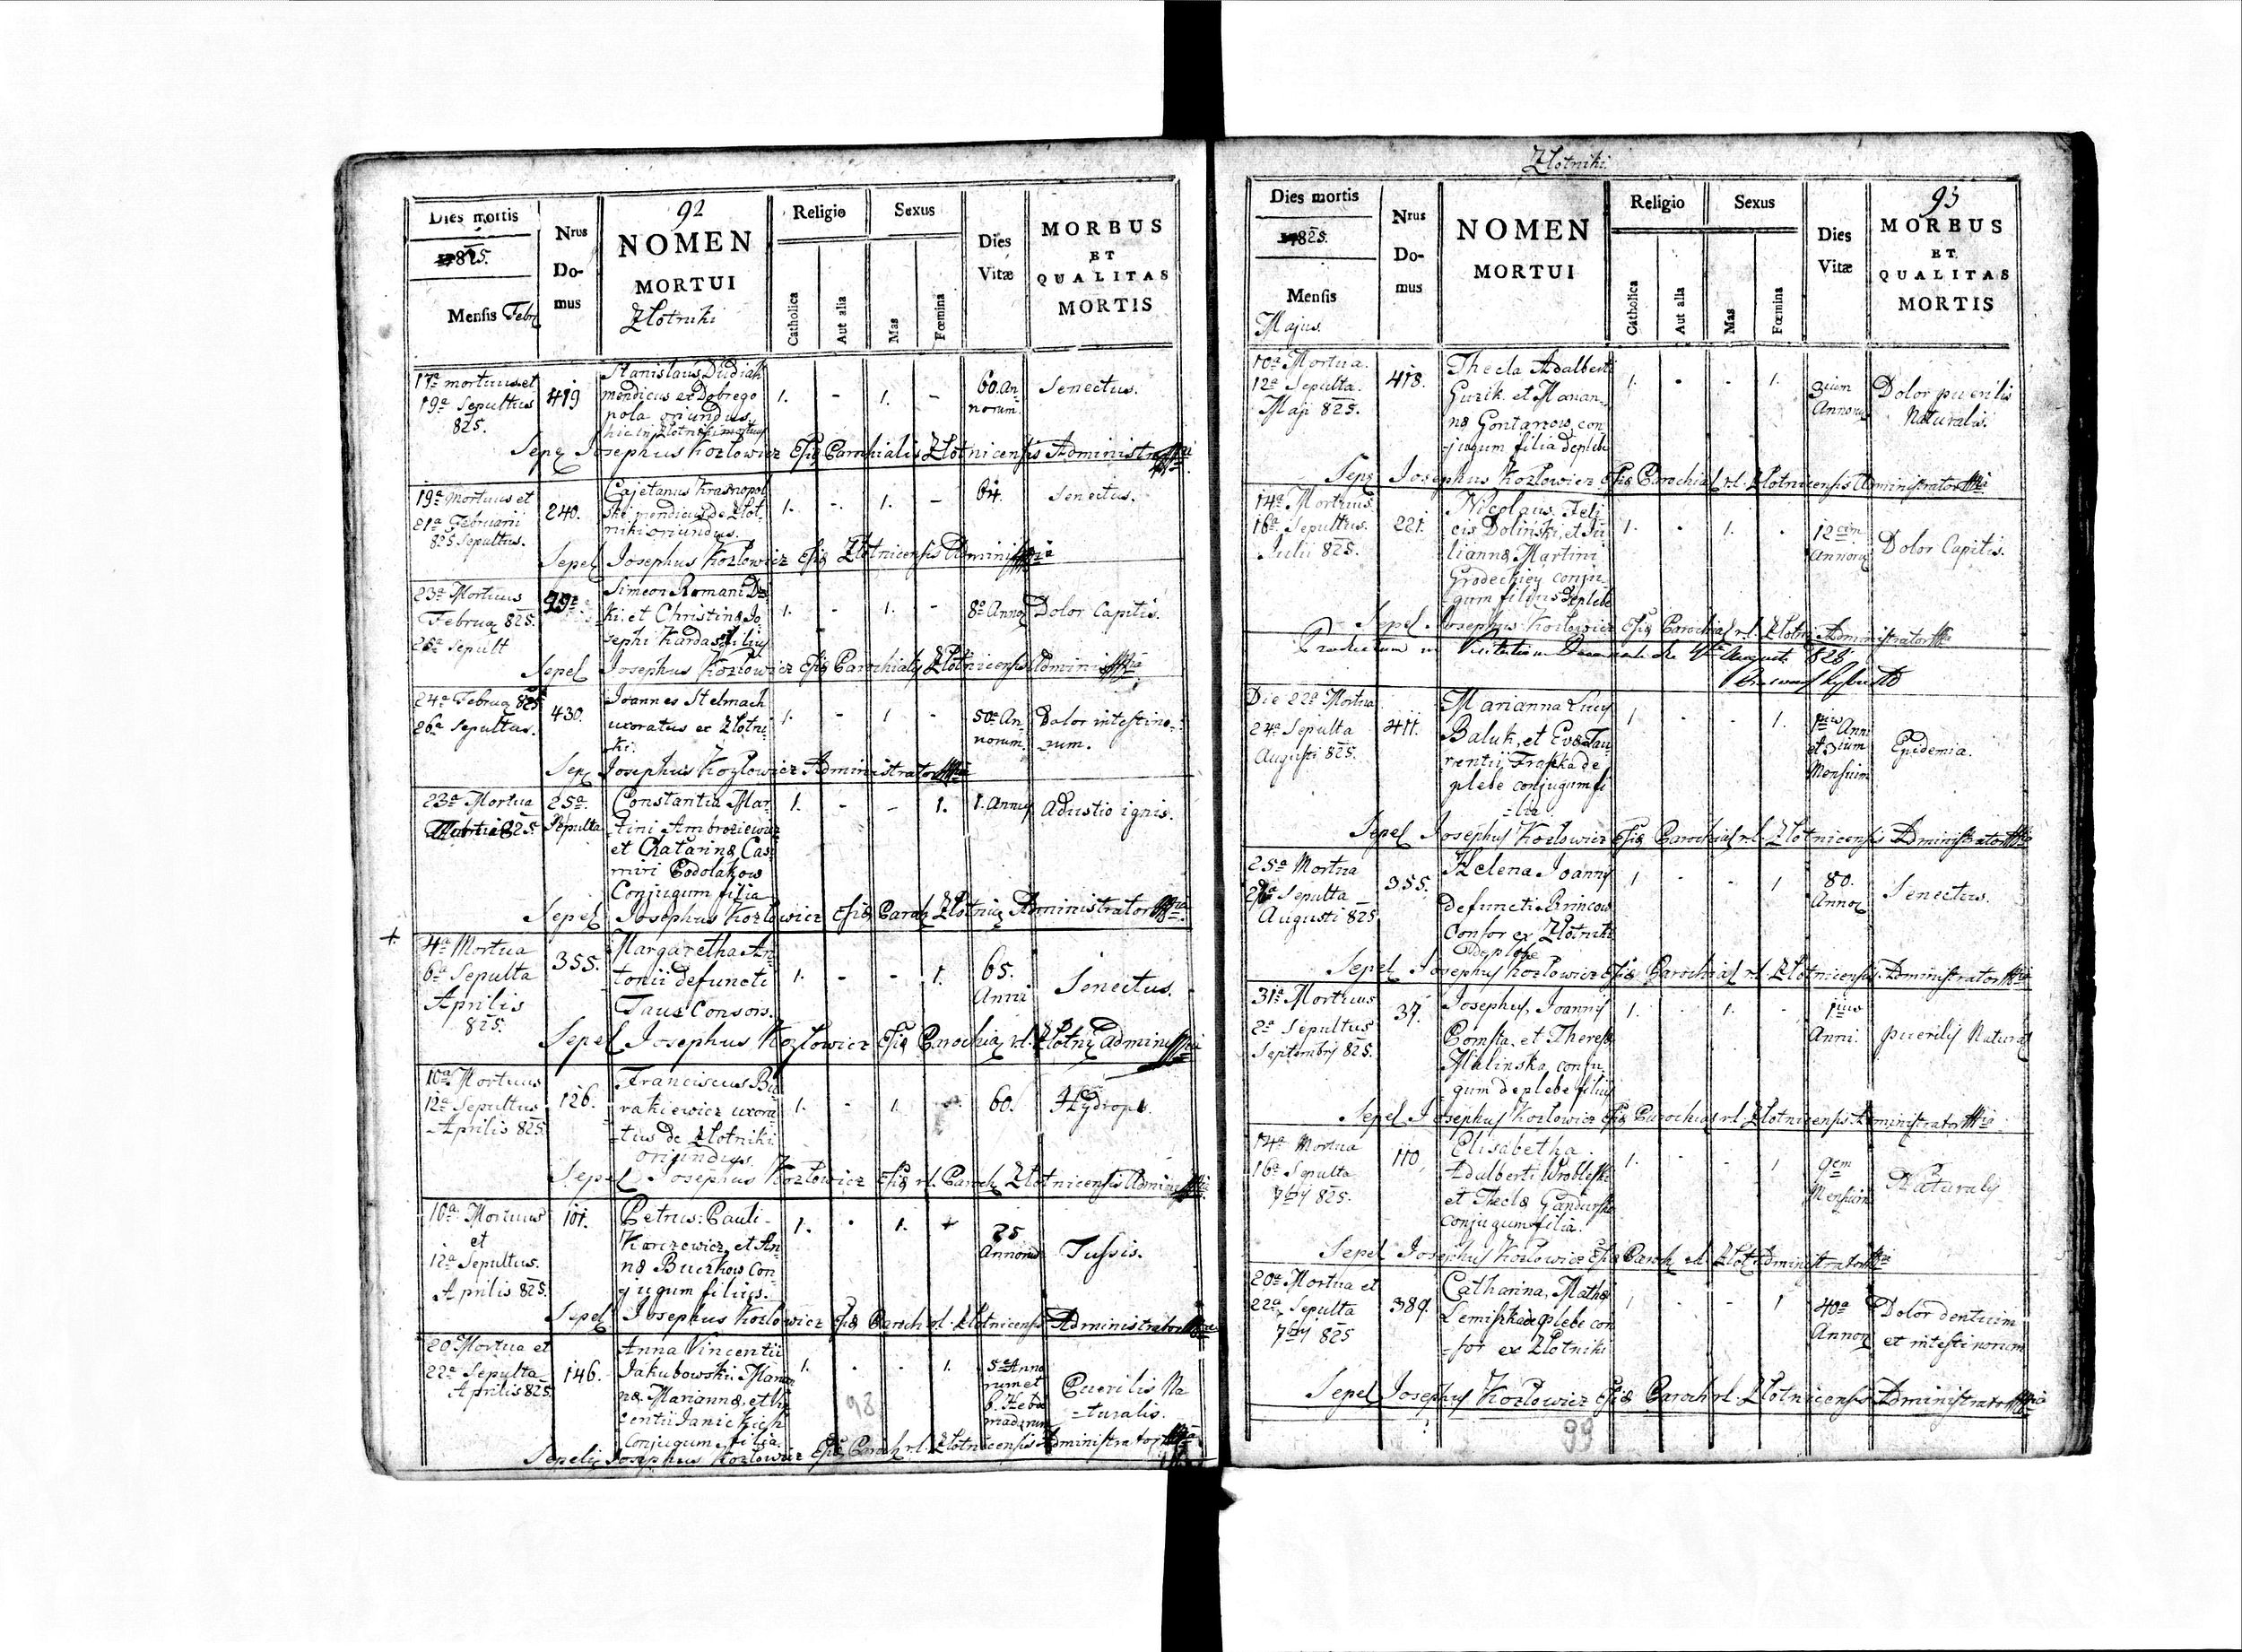 92
Dies mortis
1825.
Mensis Febr
Nrus
Do-
mus
NOMEN
MORTUI
Złotniki
Religio
Catholica
Aut alia
Sexus
Mas
Fœmina
Dies
Vitæ
MORBUS
ET
QUALITAS
MORTIS
17a mortuus et
19a Sepultus
825.
419
Stanislaus Dudiak
mendicus ex Dobrego
pola oriundus
hic in Złotniki mortuus
1. - 1. -
60. An-
norum.
Senectus.
Josephus Kozłowicz Parochialis Złotnicensis Administrator
19a Mortuus et
21a Februarii
825 Sepultus.
240.
Cajetanus Krasnopol
ski mendicus de Złot-
niki oriundus.
1. - 1. -
64.
Senectus.
Sepel Josephus Kozłowicz Złotnicensis
23a Mortuus
Februa 825.
25a Sepult
Simeon Romani
ki et Christina Jo-
sephi Kardasz filius
1. - 1. -
8a Anno
Dolor Capitis.
Sepel Josephus Kozłowicz Parochialis Złotnicensis
24a Februa 825
26a Sepultus.
430.
Joannes Stelmach
uxoratus ex Złotni-
ki.
1. - 1 -
50a An
norum.
Dolor intestino-
rum.
Josephus Kozłowicz Administrator
23a Mortua
825.
25a.
Sepulta
Constantia Mar
tini Ambroziewicz
et Chatarina Casi
miri Podolakow
Conjugum filia
1. - - 1.
1. Anny
Adustio ignis.
Sepel Josephus Kozłowicz Paroch Złotnic Administrator
+
4a Mortua
6a Sepulta
Aprilis
825.
355.
Margaretha An-
tonii defuncti
Taus Consors.
1. - - 1.
65.
Anni
Senectus.
Sepel Josephus Kozłowicz Parochia r.l. Złotni
10a Mortuus
12a Sepultus
Aprilis 825
126.
Franciscus Bu
rakiewicz uxora
-tus de Złotniki
oriundus.
1. - 1. -
60.
Hydrops.
Sepel Josephus Kozłowicz r.l. Paroch Złotnicensis
10a Mortuus
et
12a Sepultus.
Aprilis 825.
101.
Petrus Pauli
Karczewicz, et An-
na Buczkow Con
jugum filius.
1. . 1. +
25
Annorum
Tussis.
Sepel Josephus Kozłowicz Paroch r.l. Złotnicensis Administrator
20 Mortua et
22a Sepulta
Aprilis 825
146.
Anna Vincentii
Jakubowski
Marianna, et
centii Janickich
Conjugum filia.
1. . . 1.
5a Anno
rum et
6. Hebdo
madarum
Puerilis Na
-turalis.
98
Josephus Kozłowicz Paroch r.l. Złotnicensis Administrator
Złotniki
93
Dies mortis
1825.
Mensis
Majus.
Nrus
Do-
mus
NOMEN
MORTUI
Religio
Catholica
Aut alia
Sexus
Mas
Fœmina
Dies
Vitæ
MORBUS
ET
QUALITAS
MORTIS
10a Mortua.
12a Sepulta.
Maji 825.
418.
Thecla Adalberti
Guzik et Marian-
na Gontarzow, con
-jugum filia de plebe
1. . . 1.
3ium
Annorum
Dolor puerilis
Naturalis.
Josephus Kozłowicz Parochial r.l. Złotnicensis Administrator
14a Mortuus
16a Sepultus.
Julii 825.
221.
Nicolaus Feli
cis Doliński, et Ju
lianna Martini
Grodeckiey conju
gum filius de plebe
1. . 1. .
12cim
Annorum
Dolor Capitis.
Sepel Josephus Kozłowicz Parochial r.l. Złotni Administrator
August 826
Die 22a Mortua
24a Sepulta
Augusti 825.
411.
Marianna Lucy
Baluk, et Eva Lau
rentii de
plebe conjugum fi
-lia.
1 - - 1.
Anni
et 3ium
Mensium
Epidemia.
Sepel Josephus Kozłowicz Parochial r.l. Złotnicensis Administrator
25a Mortua
Sepulta
Augusti 825
355.
Helena Joanny
defuncti Brincow
Consor ex Złotniki
1 - - 1
80.
Annor
Senectus.
Sepel Josephus Kozłowicz Parochial r.l. Złotnicensis Administrator
31a Mortuus
2a Sepultus
Septembry 825.
37.
Josephus, Joanny
et Theresa
Malinska, conju
gum de plebe filius
1. . 1. .
1ius
Anni.
puerily Natural
Sepel Josephus Kozłowicz Parochial r.l. Złotnicensis Administrator
14a Mortua
16a Sepulta
7bry 825.
110
Elisabetha
Adalberti Wroblewski
et Thecla
conjugum filia.
1. - - 1
9em
Mensium
Naturaly
Sepel Josephus Kozłowicz Paroch r.l. Złot Administrator
20a Mortua et
22a Sepulta
7bry 825
389.
Catharina, Mathei
de plebe con
-sor ex Złotniki
1 - - 1
40a
Annor
Dolor dentium
et intestinorum
Sepel Josephus Kozłowicz Paroch r.l. Złotnicensis Administrator
99